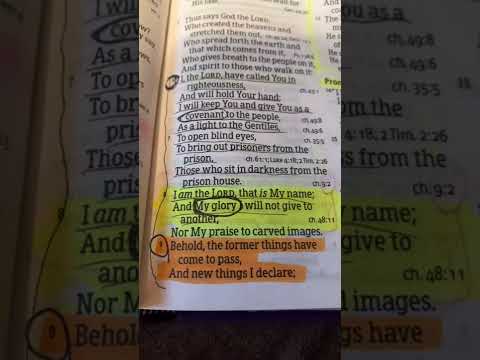 Thus says God the LORD,
Who created the heavens and
stretched them out,
Who spread forth the earth and
that which comes from it,
Who gives breath to the people on it,
And spirit to those who walk on it:
I, the LORD, have called You in
righteousness,
And will hold Your hand;
I will keep You and give You as a
covenant to the people, ch.49:8
As a light to the Gentiles, ch.49:6
7 To open blind eyes, ch.35:5
To bring out prisoners from the
prison, ch. 61:1; Luke 4:18; 2 Tim. 2:26
Those who sit in darkness from the
prison house. ch.9:2
8 I am the LORD, that is My name;
And My glory I will not give to
another, ch. 48:11
Nor My praise to carved images.
9 Behold, the former things have
come to pass,
And new things I declare;
covenant
As a
To open
To bring
prison
Those
prison
8 I am
And
ano
Nor My
9 Behold
You as a
ch.49:8
ch.49:6
ch.35:5
from the
4:18; 2 Tim. 2:26
from the
ch.9:2
name;
give to
ch. 48:11
images.
have